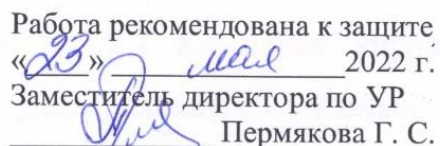 Работа рекомендована к защите
«23» мая 2022 г.
Заместитель директора по УР
Пермякова Г. С.